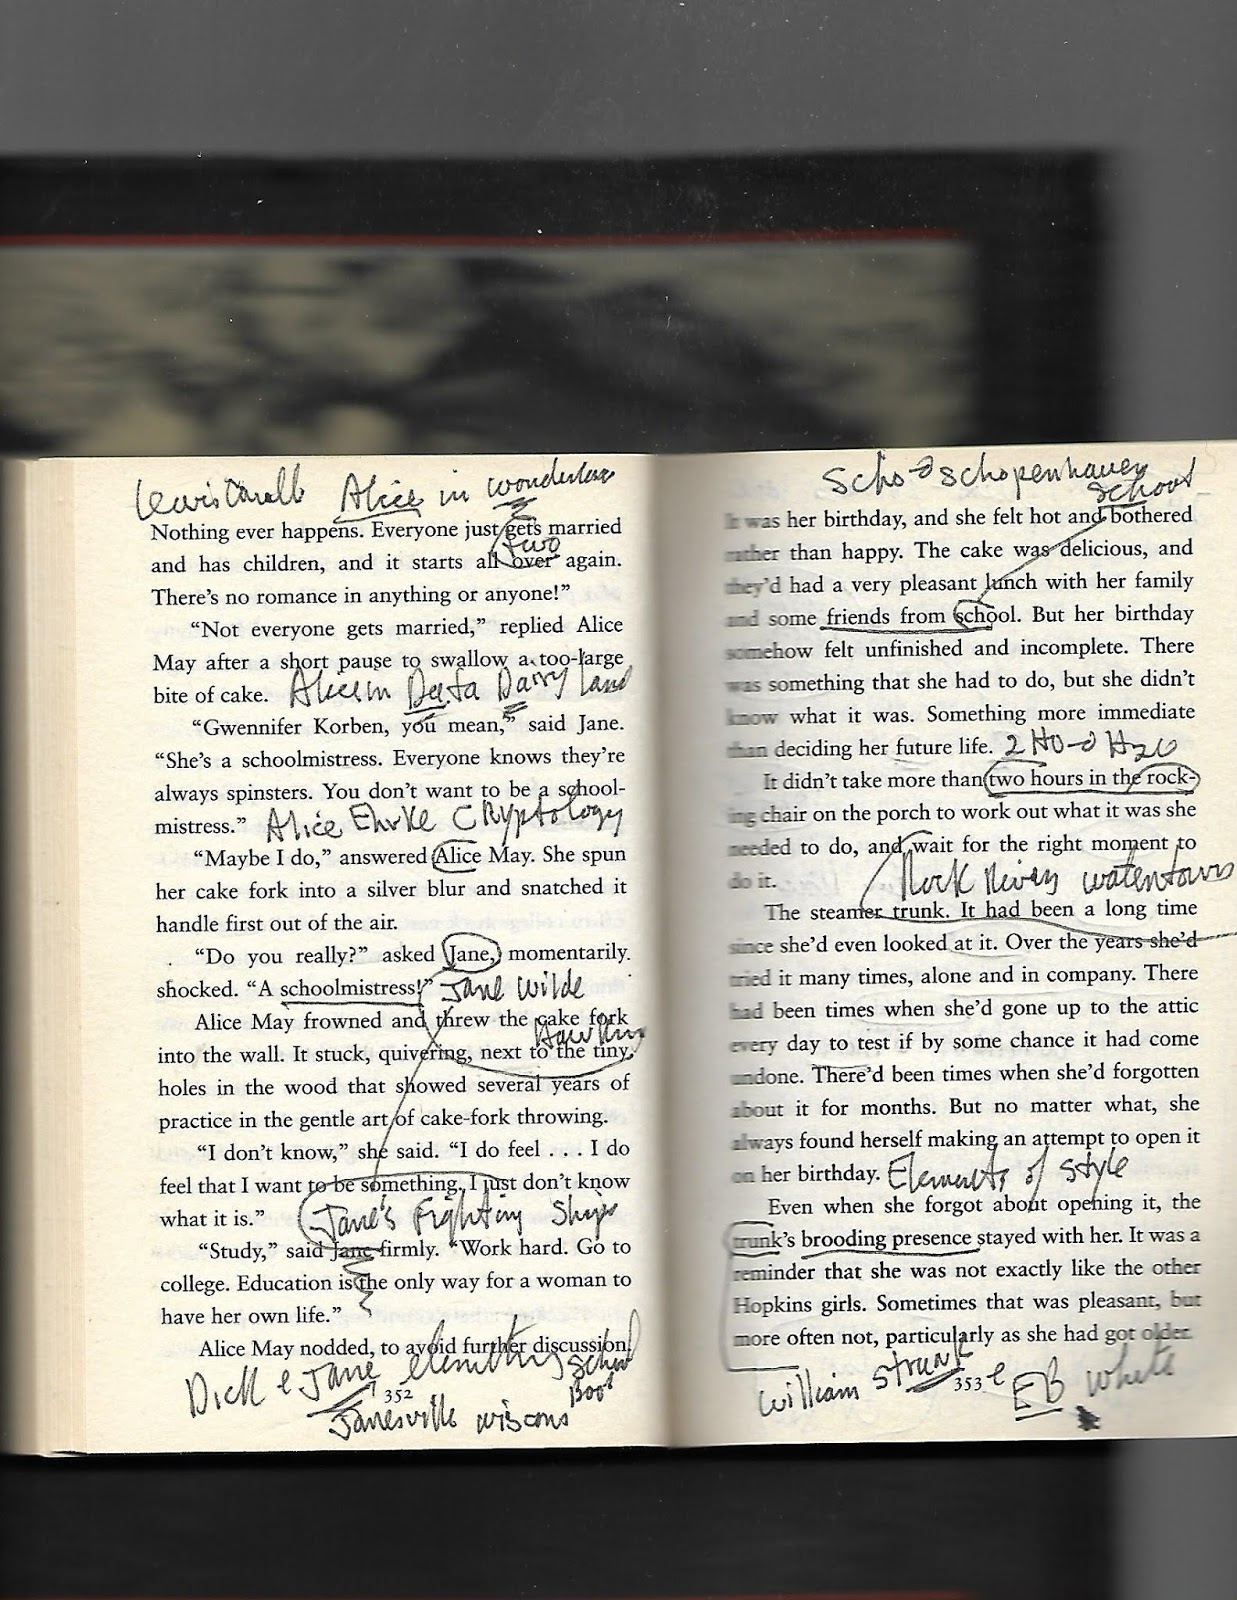 Lewis Caroll Alice in wonderlan
Nothing ever happens. Everyone just gets married
two
and has children, and it starts all over again.
There's no romance in anything or anyone!”
“Not everyone gets married,” replied Alice
May after a short pause to swallow a too-large
bite of cake. Alice in Data Dairy land
“Gwennifer Korben, you mean,” said Jane.
“She's a schoolmistress. Everyone knows they're
always spinsters. You don't want to be a school-
mistress.” Alice Ehrke Cryptology
“Maybe I do,” answered Alice May. She spun
her cake fork into a silver blur and snatched it
handle first out of the air.
“Do you really?” asked Jane, momentarily
shocked. “A schoolmistress!” Jane Wilde
Alice May frowned and threw the cake fork
Hawking
into the wall. It stuck, quivering, next to the tiny
holes in the wood that showed several years of
practice in the gentle art of cake-fork throwing.
“I don't know,” she said. “I do feel . . . I do
feel that I want to be something. I just don't know
what it is.” Jane's Fighting Ships
“Study,” said Jane firmly. “Work hard. Go to
college. Education is the only way for a woman to
have her own life.”
Alice May nodded, to avoid further discussion.
Dick & Jane school
352
Janesville
Scho Schopenhauer
school
It was her birthday, and she felt hot and bothered
rather than happy. The cake was delicious, and
they'd had a very pleasant lunch with her family
and some friends from school. But her birthday
somehow felt unfinished and incomplete. There
was something that she had to do, but she didn't
know what it was. Something more immediate
than deciding her future life. 2 HO H2O
It didn't take more than two hours in the rock-
ing chair on the porch to work out what it was she
needed to do, and wait for the right moment to
do it. Rock River watertown
The steamer trunk. It had been a long time
since she'd even looked at it. Over the years she'd
tried it many times, alone and in company. There
had been times when she'd gone up to the attic
every day to test if by some chance it had come
undone. There'd been times when she'd forgotten
about it for months. But no matter what, she
always found herself making an attempt to open it
on her birthday. Elements of style
Even when she forgot about opening it, the
trunk's brooding presence stayed with her. It was a
reminder that she was not exactly like the other
Hopkins girls. Sometimes that was pleasant, but
more often not, particularly as she had got older.
William Strunk & EB White
353